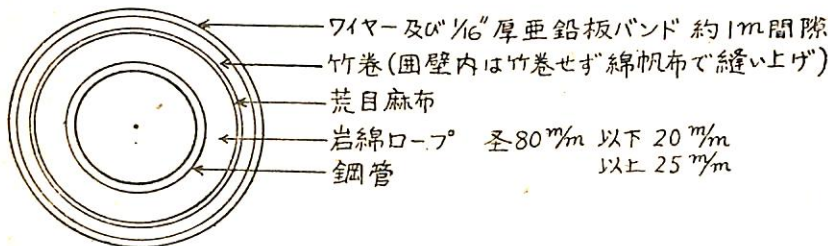 ワイヤー及び 1/16″厚亜鉛板バンド 約1m間隙
竹巻(囲壁内は竹巻せず綿帆布で縫い上げ)
荒目麻布
岩綿ロープ 圣80m/m 以下 20m/m
以上 25m/m
鋼管